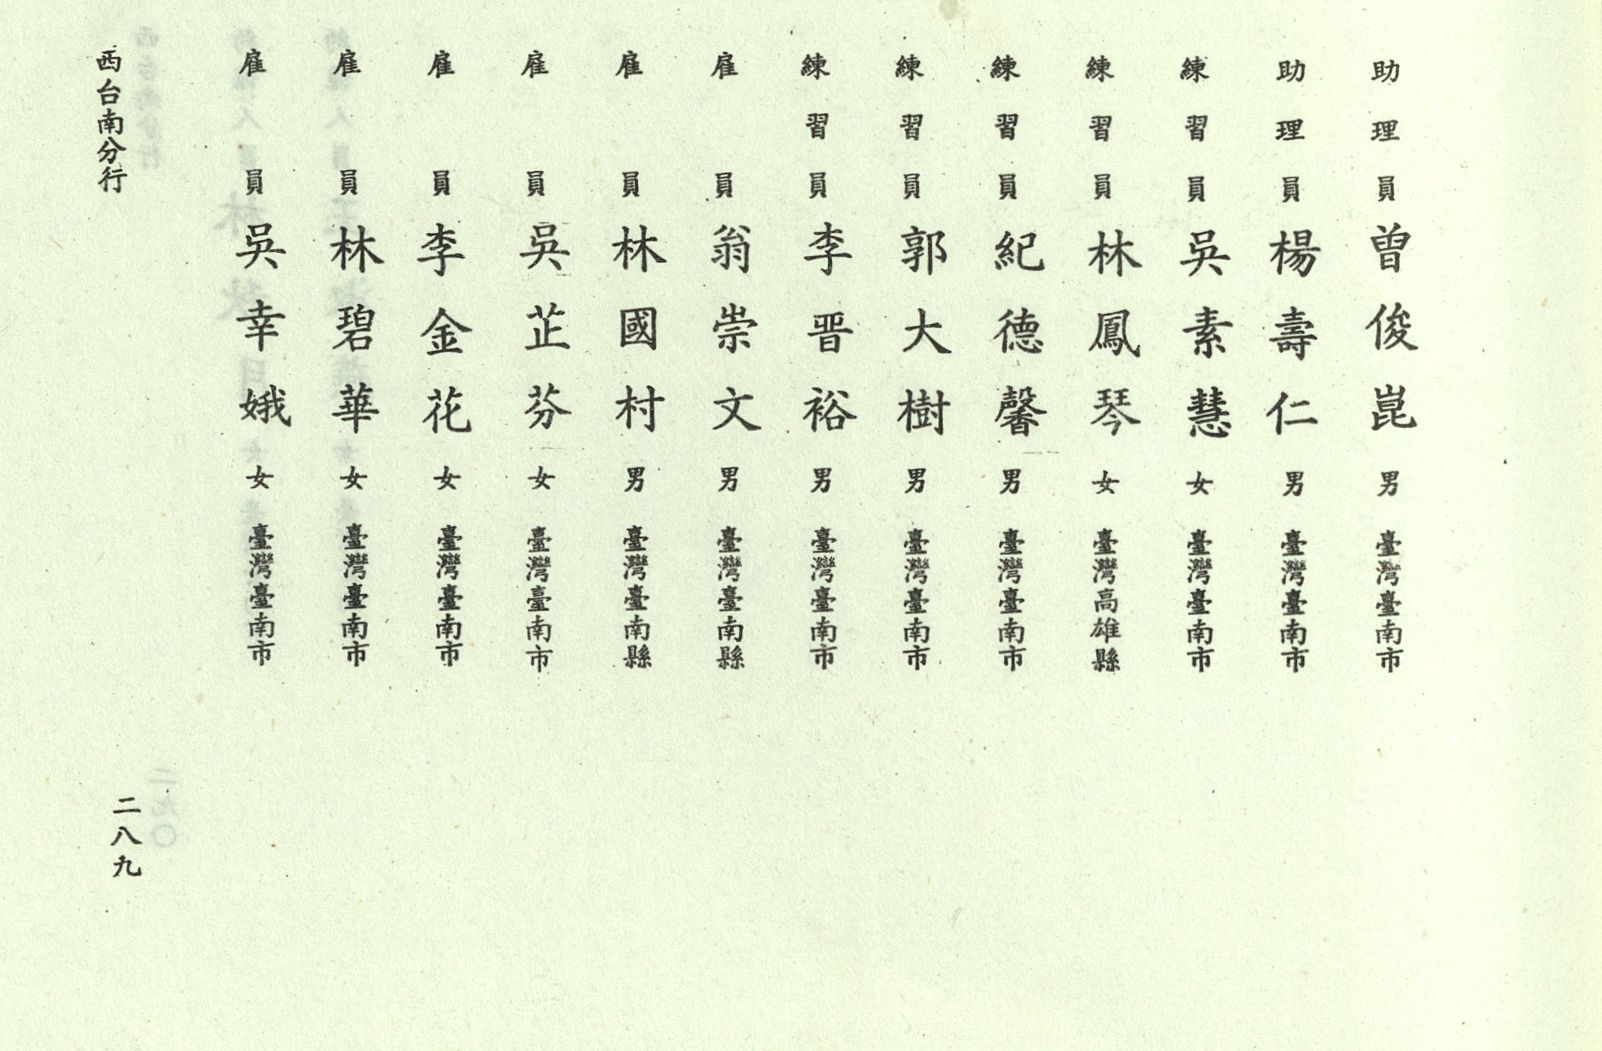 助理員曾俊崑男臺灣臺南市
助理員楊壽仁男臺灣臺南市
練習員吳素慧女臺灣臺南市
練習員林鳳琴女臺灣高雄縣
練習員紀德馨男臺灣臺南市
練習員郭大樹男臺灣臺南市
練習員李晋裕男臺灣臺南市
雇員翁崇文男臺灣臺南縣
雇員林國村男臺灣臺南縣
雇員吳芷芬女臺灣臺南市
雇員李金花女臺灣臺南市
雇員林碧華女臺灣臺南市
雇員吳幸娥女臺灣臺南市
西台南分行
二八九